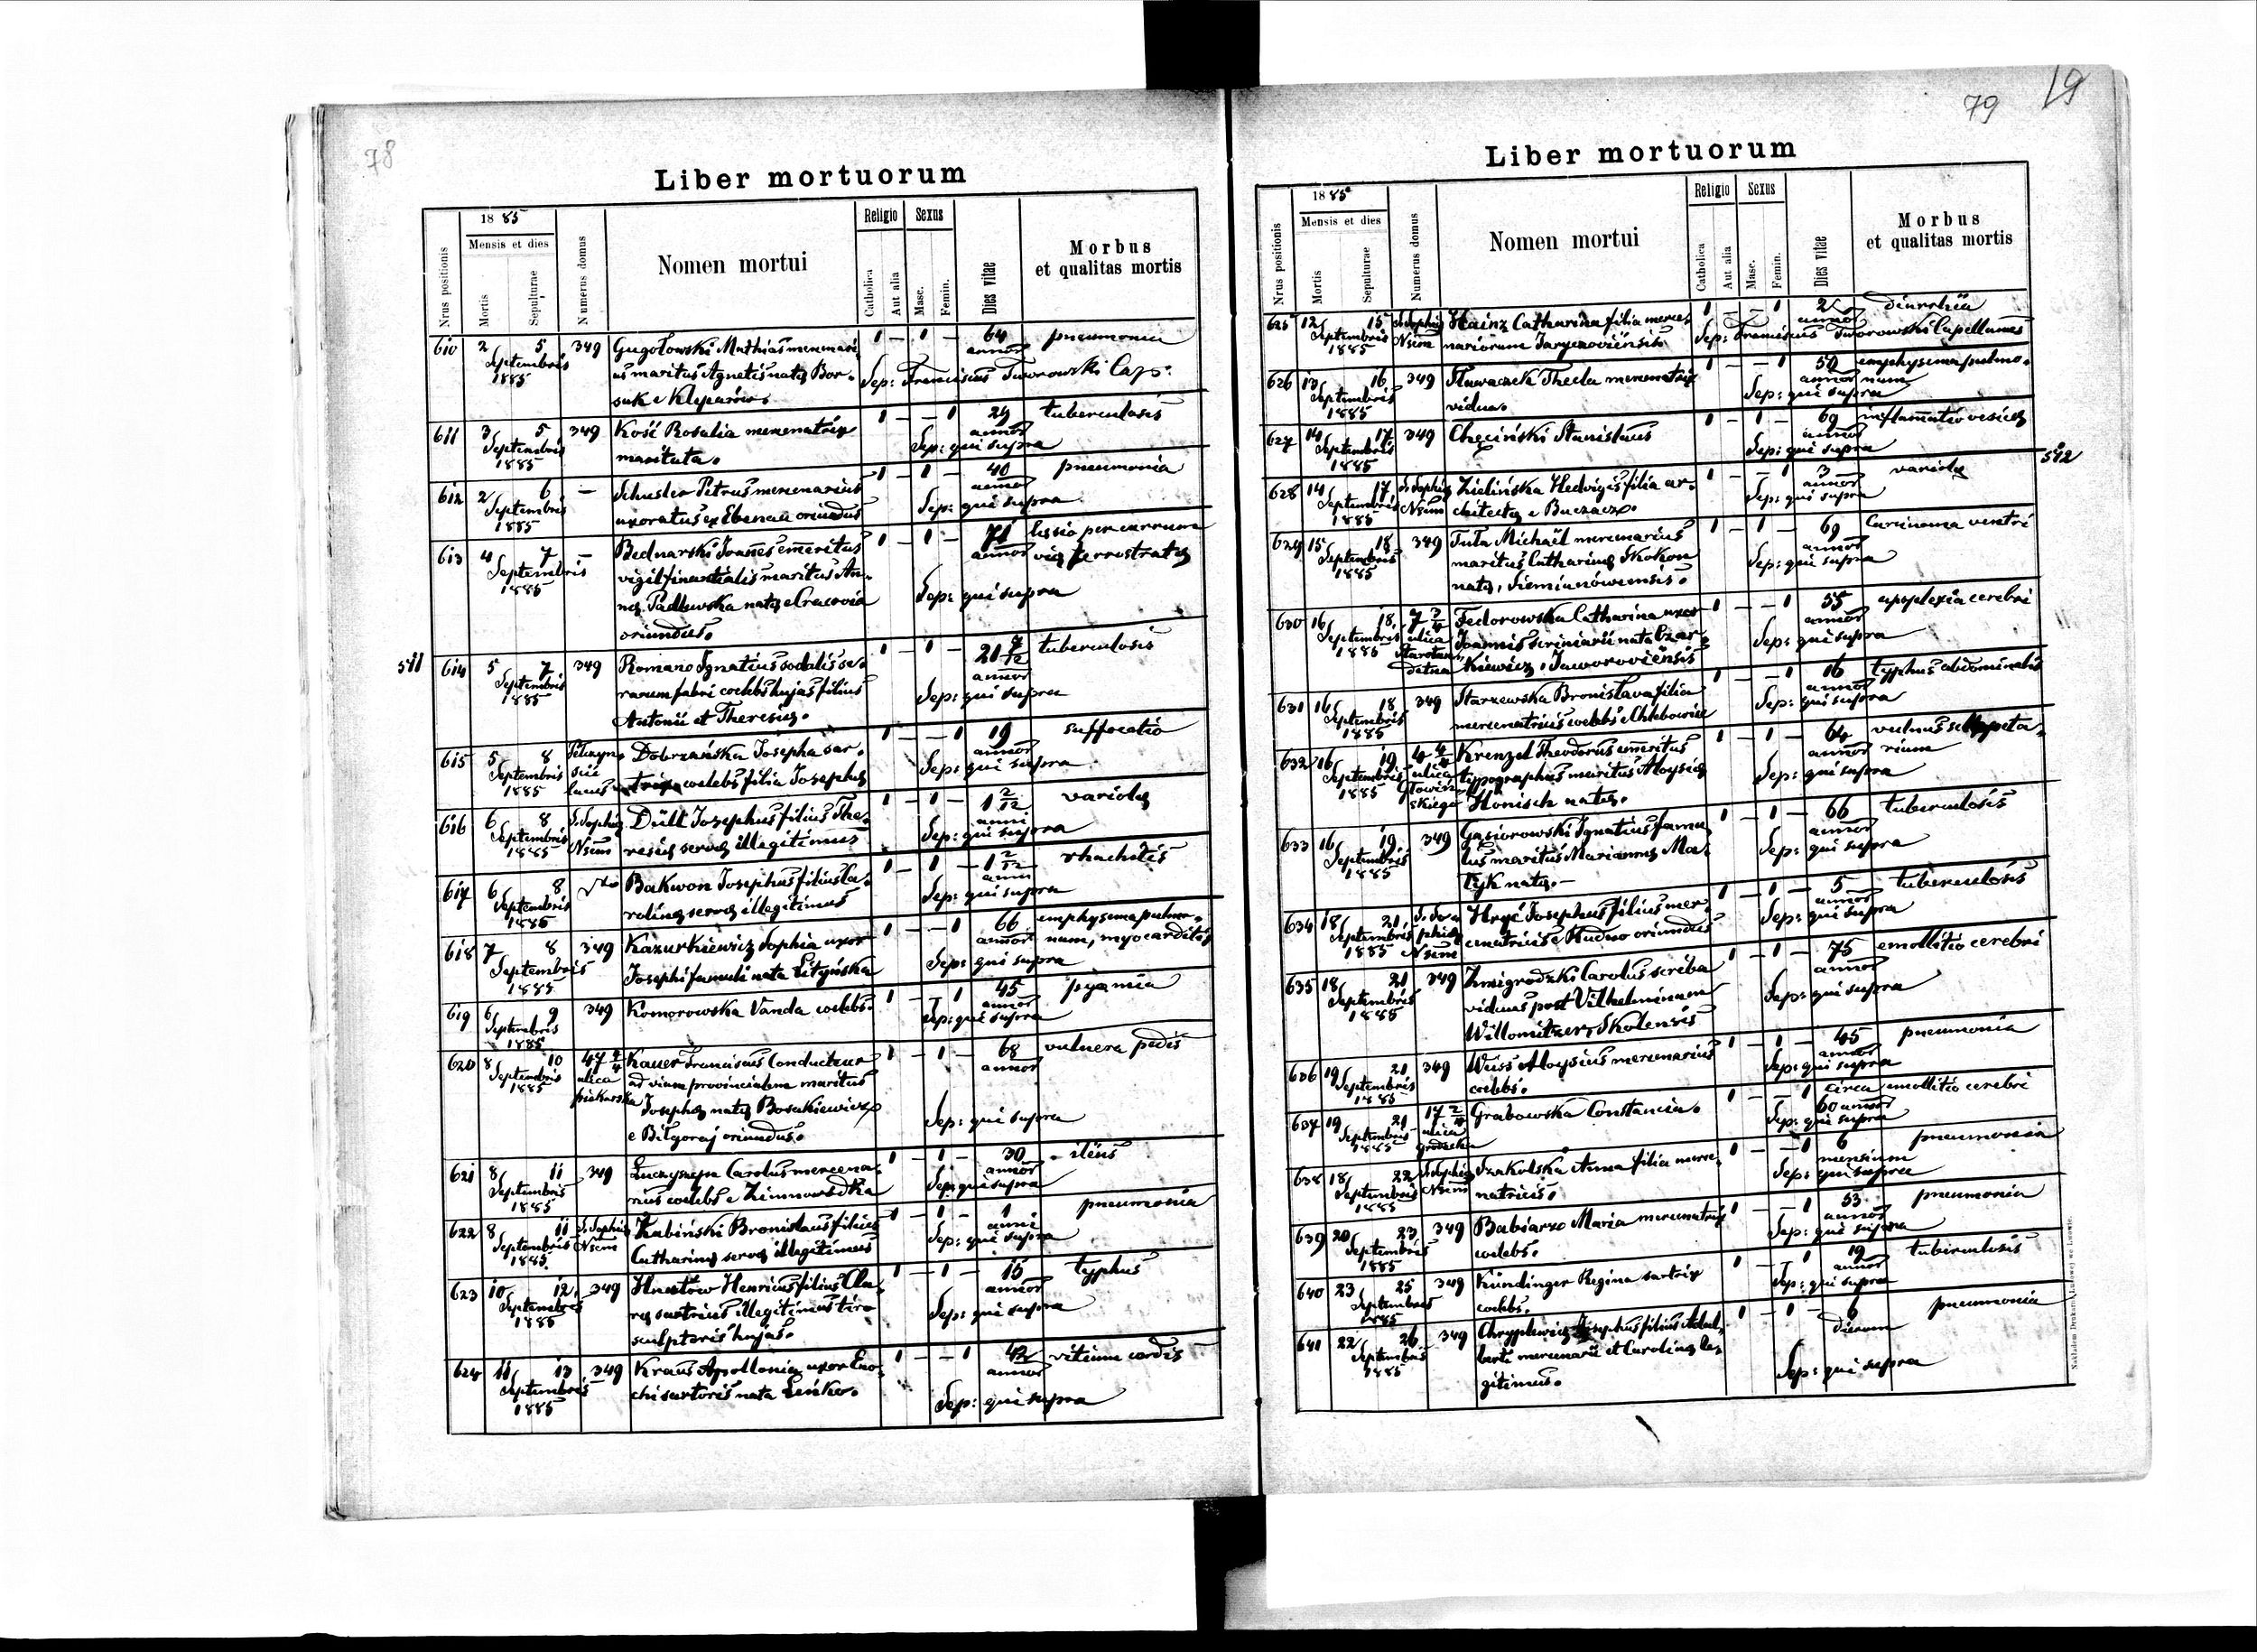 78
Liber mortuorum
1885
Religio Sexus
Mensis et dies
Nrus positionis Mortis Sepulturae Numerus domus Nomen mortui Catholica Aut alia Masc. Femin. Dies vitae Morbus et qualitas mortis
610 2 5 349 Gugołowski Mathias mercenari- 1 – 1 – 64 pneumonia
Septembris us maritus Agnetis natæ Bor- annor
1885 suk e Kleparów. Sep: Franciscus Tworowski Cap:
611 3 5 349 Kość Rosalia mercenatrix 1 – – 1 29 tuberculosis
Septembris maritata. annor
1885 Sep: qui supra
612 2 6 – Schuster Petrus mercenarius 1 – 1 – 40 pneumonia
Septembris uxoratus ex Ebenau oriundus annor
1885 Sep: qui supra
613 4 7 – Bednarski Joannes emeritus 1 – 1 – 71 lessio per currum
Septembris vigil finantialis maritus An- annor viæ ferrostratæ
1885 næ Padlewska natæ e Cracovia Sep: qui supra
oriundus.
511 614 5 7 349 Romano Ignatius sodalis se- 1 – 1 – 21 7/12 tuberculosis
Septembris rarum fabri coelebs hujas filius annor
1885 Antonii et Theresiæ. Sep: qui supra
615 5 8 Dobrzańska Josepha sar- 1 – – 1 19 suffocatio
Septembris lucus trix coelebs filia Josephæ annor
1885 Sep: qui supra
616 6 8 S. Sophiæ Düll Josephus filius The- 1 – 1 – 1 2/12 variolæ
Septembris Nsim resiæ servæ illegitimus anni
1885 Sep: qui supra
617 6 8 Bakwon Josephus filius Ca- 1 – 1 – 1 2/12 rhachitis
Septembris rolinæ servæ illegitimus anni
1885 Sep: qui supra
618 7 8 349 Kazurkiewicz Sophia uxor 1 – – 1 66 emphysema pulmo-
Septembris Josephi famuli nata Lityńska annor num, myocarditis
1885 Sep: qui supra
619 6 9 349 Komorowska Vanda coelebs. 1 – – 1 45 pyæmia
Septembris annor
1885 Sep: qui supra
620 8 10 47 2/4 Kauer Franciscus Conducteur 1 – 1 – 68 vulnera pedis
Septembris ulica ad viam provincialem maritus annor
1885 piekarska Josephæ natæ Bosakiewicz
e Biłgoraj oriundus. Sep: qui supra
621 8 11 349 Łuczyszyn Carolus mercena- 1 – 1 – 30 ileus
Septembris rius coelebs e Zimnowodka annor
1885 Sep: qui supra
622 8 11 S. Sophiæ Żabiński Bronislaus filius 1 – 1 – 1 pneumonia
Septembris Nsim Catharinæ servæ illegitimus anni
1885 Sep: qui supra
623 10 12 349 Hnatów Henricus filius Cla- 1 – 1 – 15 typhus
Septembris ræ sartricis illegitimus tiro annor
1885 sculptoris hujas. Sep: qui supra
624 11 13 349 Kraus Apolloniæ uxor Eno- 1 – – 1 42 vitium cordis
Septembris chi sartoris nata Leńko. annor
1885 Sep: qui supra
79 19
Liber mortuorum
1885
Religio Sexus
Mensis et dies
Nrus positionis Mortis Sepulturae Numerus domus Nomen mortui Catholica Aut alia Masc. Femin. Dies vitae Morbus et qualitas mortis
625 12 15 S. Sophiæ Hainz Catharina filia merce- 1 – – 1 2 diarrhöa
Septembris Nsim nariorum Jaryczoviensis annor
1885 Sep: Franciscus Tworowski Capellanus
626 13 16 349 Sławaczek Thecla mercenatrix 1 – – 1 50 emphysema pulmo-
Septembris vidua. annor num
1885 Sep: qui supra
627 14 17 349 Chęciński Stanislaus 1 – 1 – 69 inflamatio vesicæ
Septembris annor
1885 Sep: qui supra
512
628 14 17 S. Sophiæ Zielińska Hedvigis filia ar- 1 – – 1 3 variolæ
Septembris Nsim chitectæ e Buczacz. annor
1885 Sep: qui supra
629 15 18 349 Tuła Michaël mercenarius 1 – 1 – 69 Carcinoma ventri
Septembris maritus Catharinæ Skokon annor
1885 natæ, Siemianówensis. Sep: qui supra
630 16 18 7 2/4 Fedorowska Catharina uxor 1 – – 1 55 apoplexia cerebri
Septembris ulica Joannis scriniarii nata Czar- annor
1885 kiewicz, Jaworoviënsis Sep: qui supra
631 16 18 349 Starzewska Bronislava filia 1 – – 1 16 typhus abdominalis
Septembris mercenatricis coelebs e Chlebowice annor
1885 Sep: qui supra
632 16 19 4 4/4 Krenzel Theodorus emeritus 1 – 1 – 64 vulnus scloppeta-
Septembris ulica typographus maritus Aloysiæ annor rium
1885 Głowiń- skiego Honisch natæ. Sep: qui supra
633 16 19 349 Gąsiorowski Ignatius famu- 1 – 1 – 66 tuberculosis
Septembris lus maritus Mariannæ Ma- annor
1885 tyk natæ.– Sep: qui supra
634 18 21 S. So- Hryć Josephus filius mer- 1 – 1 – 5 tuberculosis
Septembris phiæ cenatricis e Rudno oriundus annor
1885 Nsim Sep: qui supra
635 18 21 349 Zmigrodzki Carolus scriba 1 – 1 – 75 emollitio cerebri
Septembris viduus post Vilhelminam annor
1885 Willomitzer, Skolensis Sep: qui supra
636 19 21 349 Weiss Aloysius mercenarius 1 – 1 – 45 pneumonia
Septembris coelebs. annor
1885 Sep: qui supra
637 19 21 17 2/4 Grabowska Constancia. 1 – – 1 circa emollitio cerebri
Septembris ulica 60 annor
1885 grodecka Sep: qui supra
638 18 22 S. Sophiæ Szkolska Anna filia merce- 1 – – 1 6 pneumonia
Septembris Nsim natricis. mensium
1885 Sep: qui supra
639 20 23 349 Babiarz Maria mercenatrix 1 – – 1 53 pneumonia
Septembris coelebs. annor
1885 Sep: qui supra
640 23 25 349 Kündinger Regina sartrix 1 – – 1 19 tuberculosis
Septembris coelebs. annor
1885 Sep: qui supra
641 22 26 349 Josephus filius Adal- 1 – 1 – 6 pneumonia
Septembris berti mercenarii et Carolinæ le- dierum
1885 gitimus. Sep: qui supra